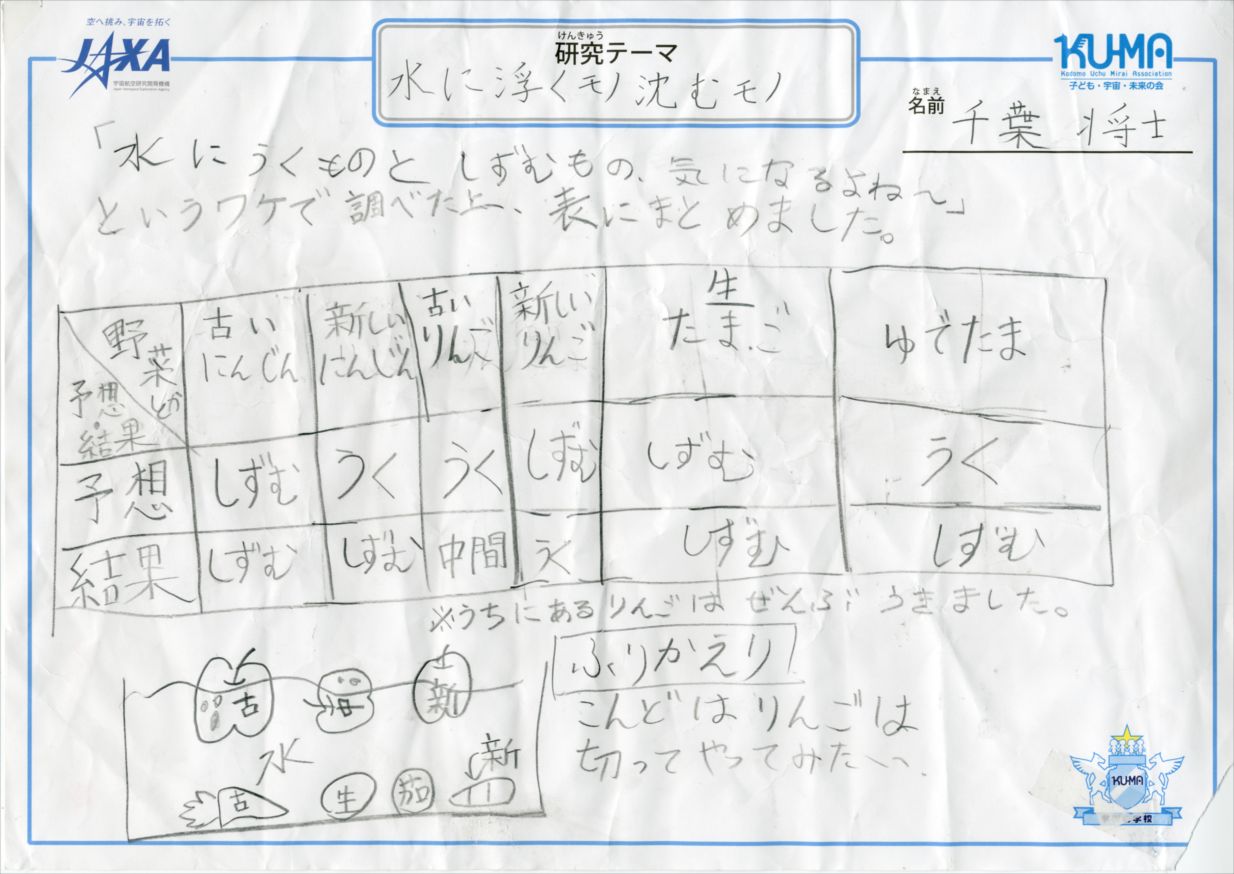 空へ挑み、宇宙を拓く
JAXA
宇宙航空研究開発機構
Japan Aerospace Exploration Agency
けんきゅう
研究テーマ
水に浮くモノ沈むモノ
KU-MA
Kodomo Uchu Mirai Association
子ども・宇宙・未来の会
なまえ
名前 千葉 将士
「水にうくものと しずむもの、気になるよね〜」
というワケで調べた上、表にまとめました。
野菜とか 予想・結果 古いにんじん 新しいにんじん 古いりんご 新しいりんご 生たまご ゆでたま
予想 しずむ うく うく しずむ しずむ うく
結果 しずむ しずむ 中間 うく しずむ しずむ
※うちにあるりんごはぜんぶうきました。
古 新
水
新
古 生 茹
ふりかえり
こんどはりんごは
切ってやってみたい。
KU-MA
学校